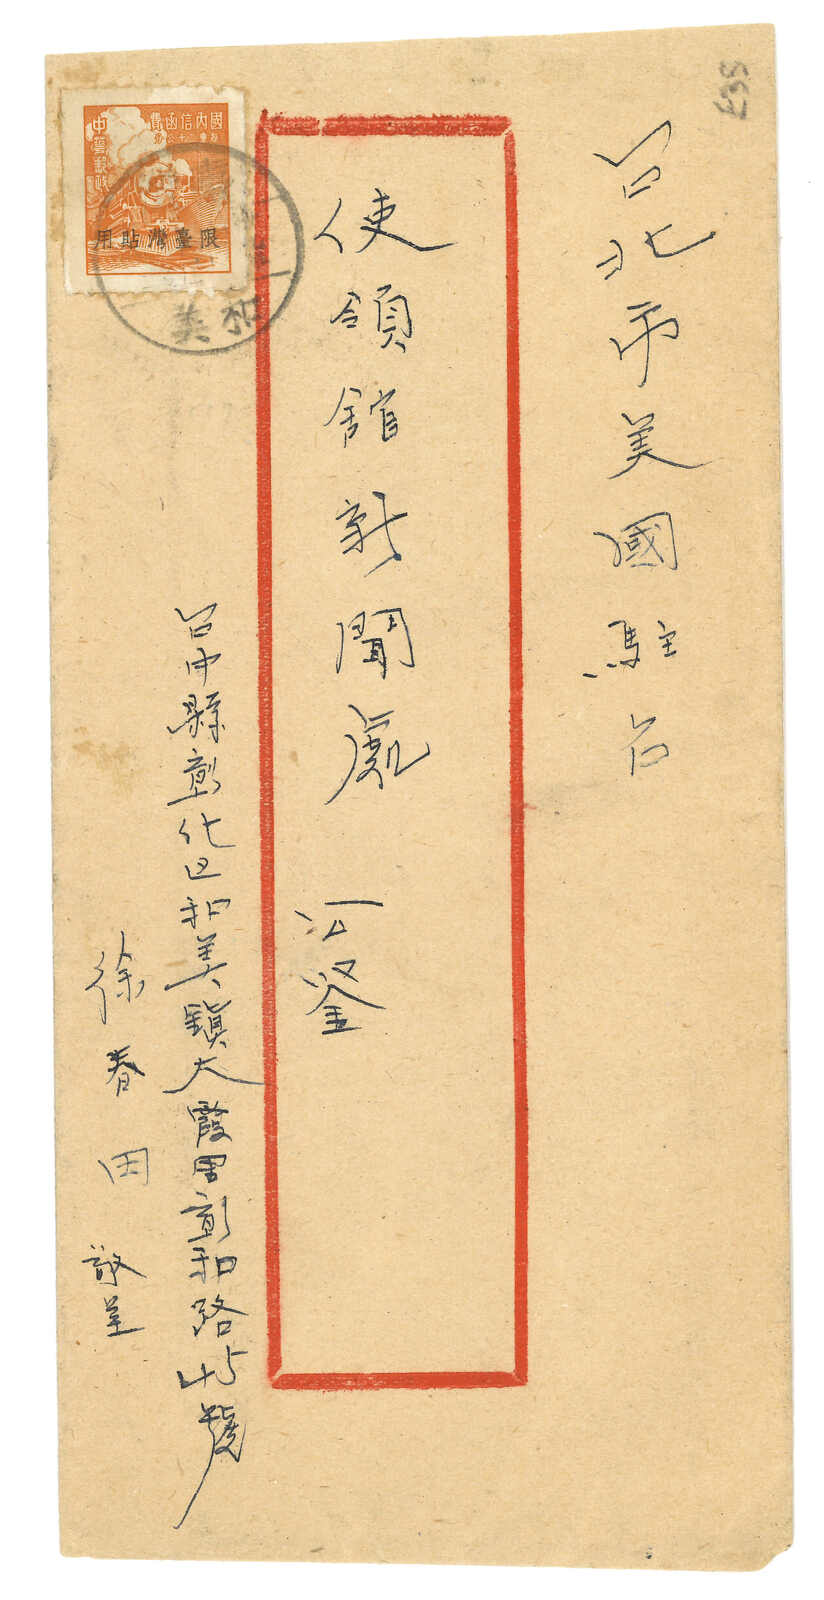 台北市美國駐台
使領館新聞處 公鑒
台中縣彰化区和美鎮大霞里彰和路45號
徐春田 敬呈
國內信函費
中華郵政
限臺灣貼用
和美